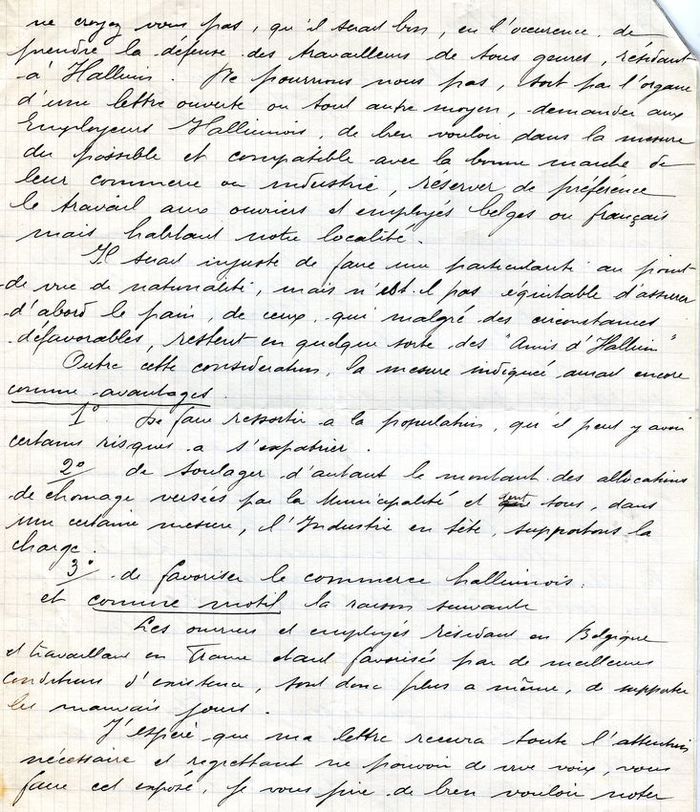 ne croyez vous pas, qu'il serait bon, en l'occurence de
prendre la défense des travailleurs de tous genres, résidant
à Halluin. Ne pourrions nous pas, soit par l'organe
d'une lettre ouverte ou tout autre moyen, demander aux
Employeurs Halluinois, de bien vouloir dans la mesure
du possible et compatible avec la bonne marche de
leur commerce ou industrie, réserver de préférence
le travail aux ouvriers et employés belges ou français
mais habitant notre localité.
Il serait injuste de faire une particularité au point
de vue de nationalité, mais n'est-il pas équitable d'assurer
d'abord le pain, de ceux, qui malgré des circonstances
défavorables, restent en quelque sorte des "Amis d'Halluin"
Outre cette considération, la mesure indiquée aurait encore
comme avantages.
1° De faire ressortir a la population, qu'il peut y avoir
certains risques a s'expatrier.
2° de soulager d'autant le montant des allocations
de chomage versées par la Municipalité et dont tous, dans
une certaine mesure, l'Industrie en tête, supportons la
charge.
3° de favoriser le commerce halluinois.
et comme motif la raison suivante
Les ouvriers et employés résidant en Belgique
et travaillant en France étant favorisés par de meilleures
conditions d'existence, sont donc plus a même, de supporter
les mauvais jours.
J'espère que ma lettre recevra toute l'attention
nécessaire et regrettant ne pouvoir de vive voix, vous
faire cet exposé, je vous prie de bien vouloir noter